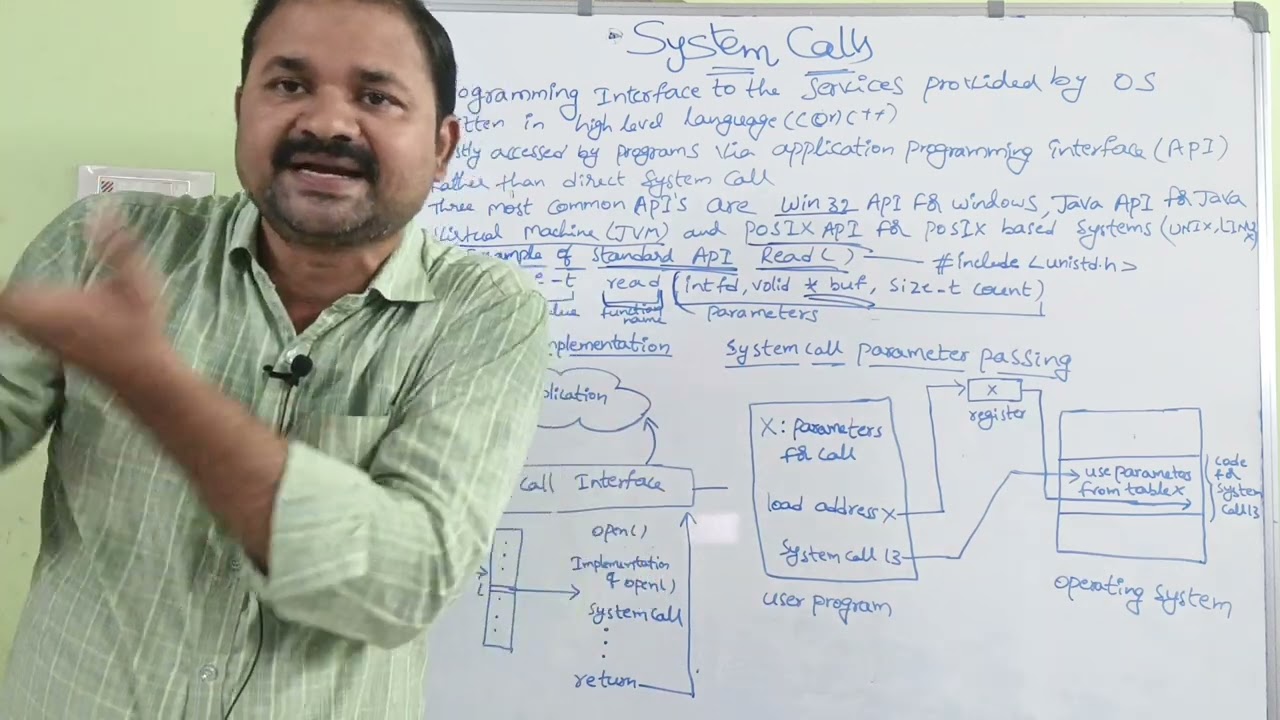 System Calls
ogramming Interface to the services provided by OS
itten in high level language (C (or) C++)
stly accessed by programs via application programming interface (API)
rather than direct System call
Three most common API's are Win 32 API for windows, Java API for Java
Virtual machine (JVM) and POSIX API for POSIX based systems (UNIX, LINUX
Example of Standard API Read() #include <unistd.h>
e-t read (int fd, void * buf, size-t count)
lue function name parameters
mplementation
plication
call Interface
open()
Implementation
of open()
system call
return
i
System call parameter passing
X
register
X: parameters
for call
load address x
system call 13
user program
use parameters
from table x
code
for
system
call 13
operating system